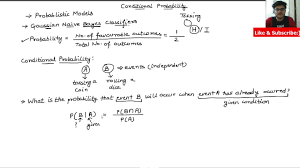 Conditional Probability
• Probabilistic Models
• Gaussian Naive Bayes Classifiers
Tossing
• Probability = No. of favourable outcomes / Total No. of outcomes = 1/2
H / T
Like & Subscribe
Conditional Probability:
A B → events (independent)
tossing a coin
rolling a dice
• What is the probability that event B, will occur when event A has already occurred?
given condition
P(B|A) = P(B∩A) / P(A)
? given